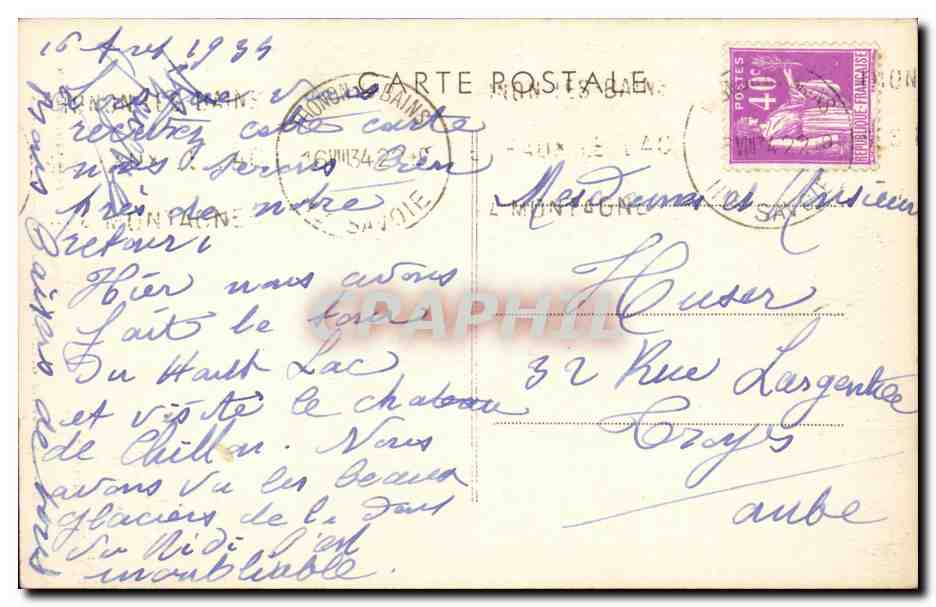 CARTE POSTALE
16 Août 1934
Lorsque vous
recevrez cette carte
nous serons bien
près de notre
retour,
Hier nous avons
fait le tour
Du Haut Lac
et visité le chateau
de Chillon. Nous
avons vu les beaux
glaciers de la Dent
du Midi c'est
inoubliable.
Bons Baisers de tous
THONON LES BAINS
16 VIII 34
SAVOIE
THONON LES BAINS
MONTAGNE
POSTES
40c
REPUBLIQUE FRANÇAISE
Mesdames et Monsieur
Huser
32 Rue Largentier
Troyes
aube
CPAPHIL